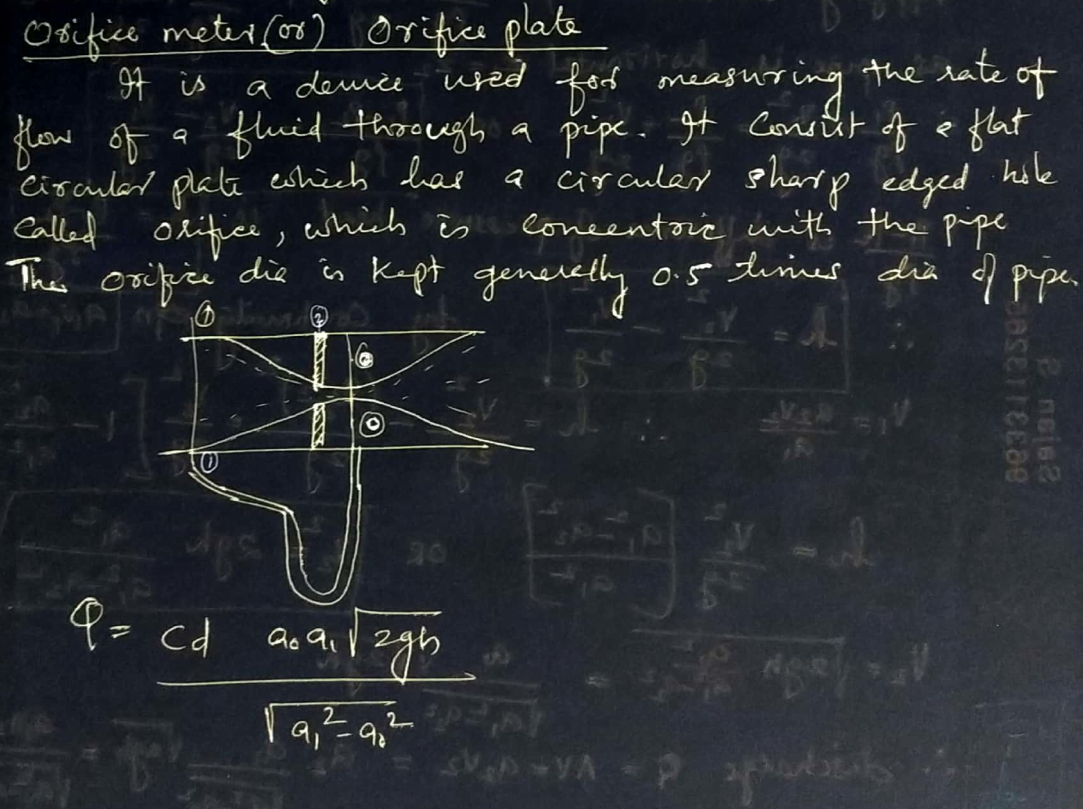 Orifice meter (or) Orifice plate
It is a device used for measuring the rate of
flow of a fluid through a pipe. It Consist of a flat
circular plate which has a circular sharp edged hole
Called orifice, which is concentric with the pipe
The orifice dia is kept generally 0.5 times dia of pipe.
① ②
①
Q = Cd a₀a₁√2gh
√a₁²-a₀²